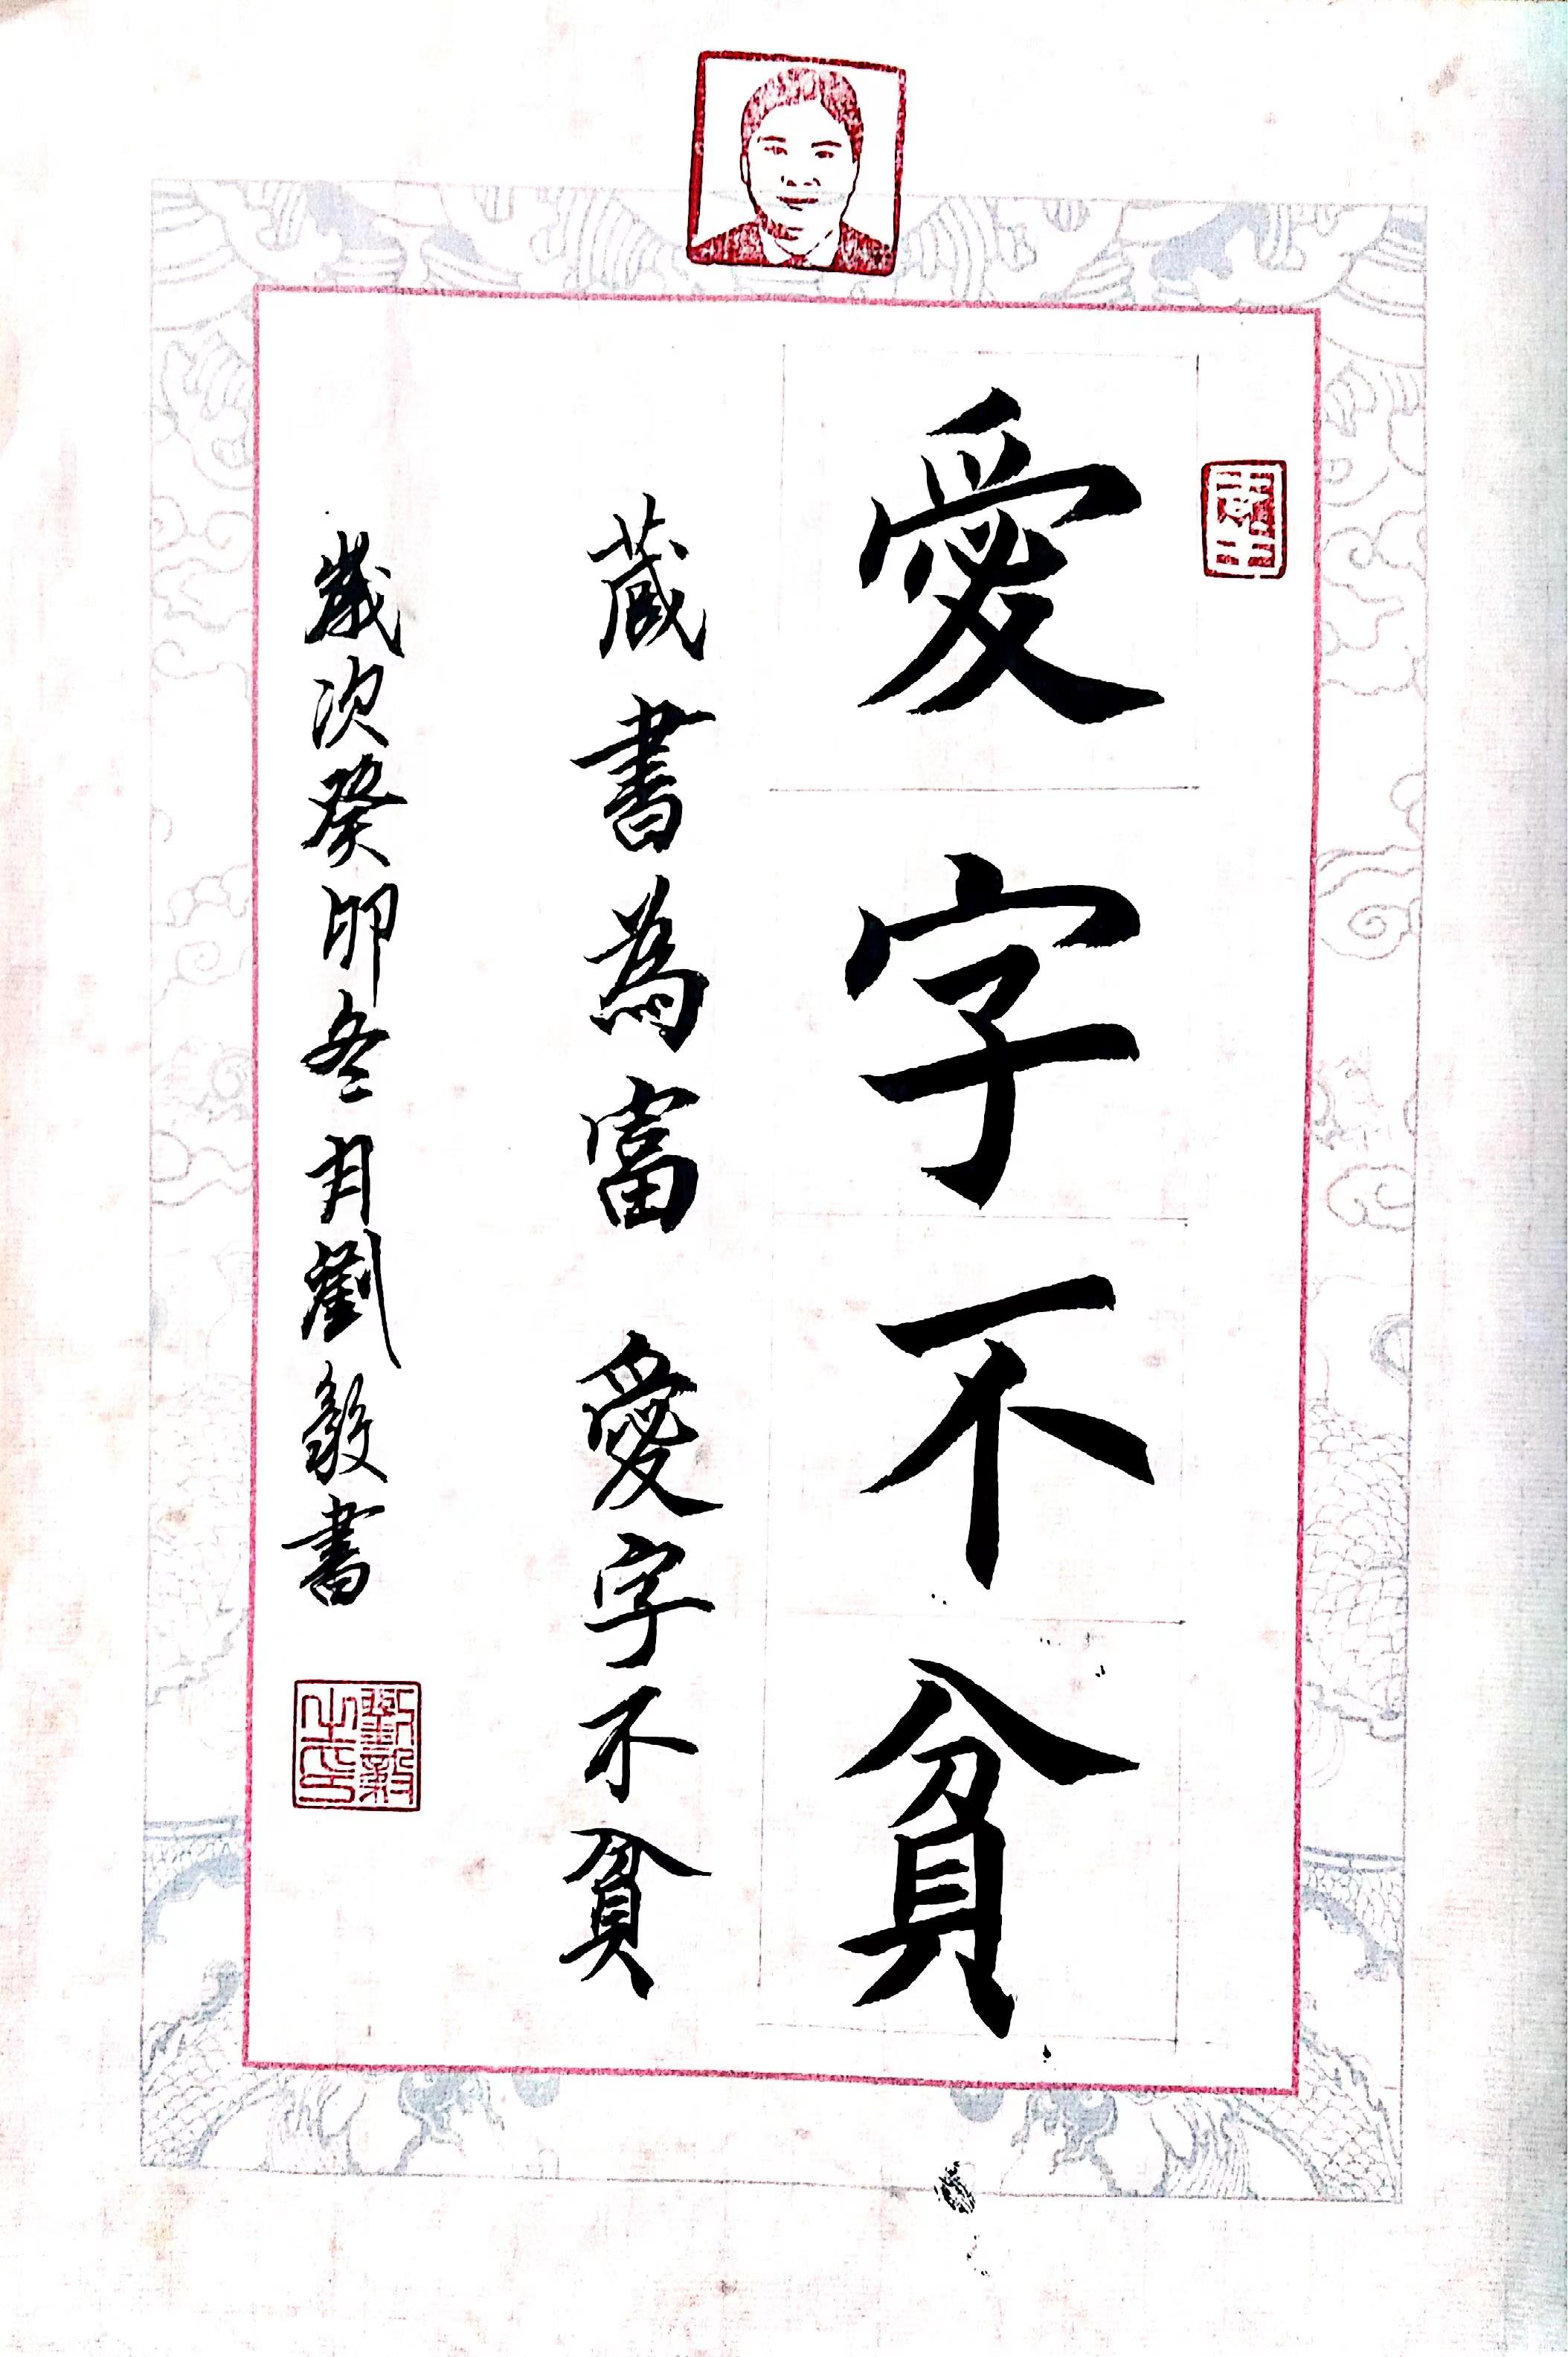 愛字不貧
藏書為富 愛字不貧
歲次癸卯冬月劉毅書
劉毅之印